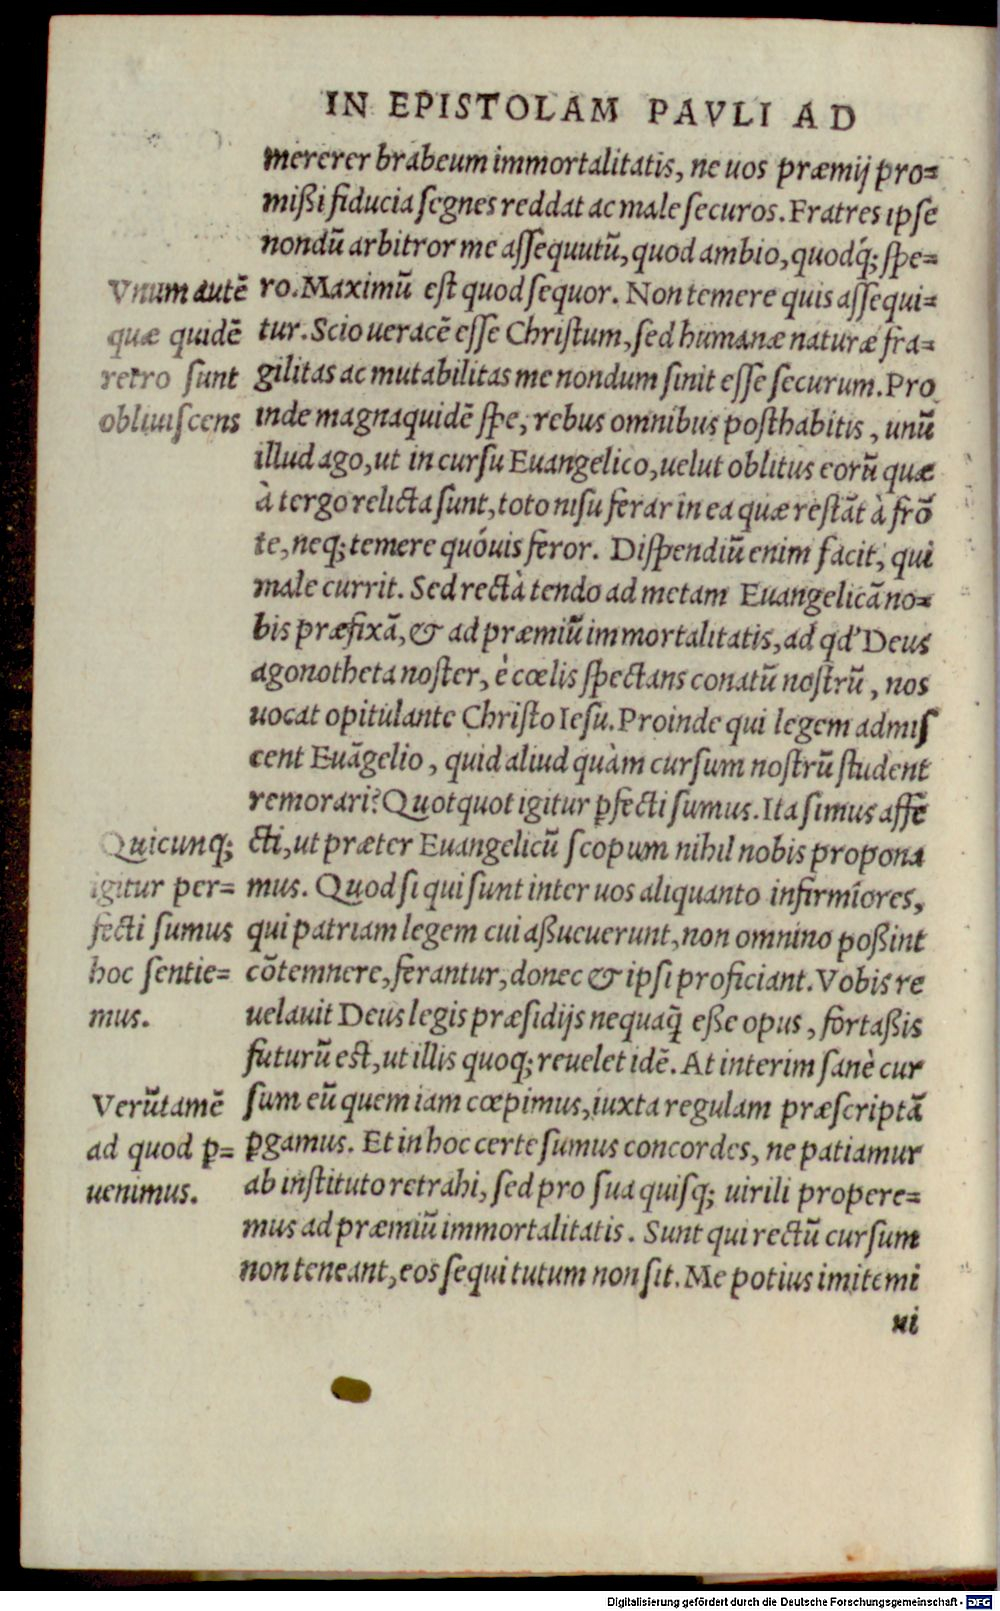 IN EPISTOLAM PAVLI AD
mererer brabeum immortalitatis, ne uos præmij pro=
mißi fiducia ſegnes reddat ac male ſecuros. Fratres ipſe
nondū arbitror me aſſequutū, quod ambio, quodq́; ſpe=
ro. Maximū eſt quod ſequor. Non temere quis aſſequi=
tur. Scio veracē eſſe Chriſtum, ſed humanæ naturæ fra=
gilitas ac mutabilitas me nondum ſinit eſſe ſecurum. Pro
inde magna quidē ſpe, rebus omnibus poſthabitis, unū
illud ago, ut in curſu Euangelico, uelut oblitus eorū quæ
à tergo relicta ſunt, toto niſu ferar in ea quæ reſtāt à frō
te, neq; temere quóuis feror. Diſpendiū enim facit, qui
male currit. Sed rectà tendo ad metam Euangelicā no=
bis præfixā, & ad præmiū immortalitatis, ad qd' Deus
agonotheta noſter, è cœlis ſpectans conatū noſtrū, nos
uocat opitulante Chriſto Ieſu. Proinde qui legem admiſ
cent Euāgelio, quid aliud quàm curſum noſtrū ſtudent
remorari? Quotquot igitur ꝑfecti ſumus. Ita ſimus affē
cti, ut præter Euangelicū ſcopum nihil nobis propona
mus. Quod ſi qui ſunt inter uos aliquanto infirmiores,
qui patriam legem cui aßueuerunt, non omnino poßint
cōtemnere, ferantur, donec & ipſi proficiant. Vobis re
uelauit Deus legis præſidijs nequaq̄ eße opus, fortaßis
futurū eſt, ut illis quoq; reuelet idē. At interim ſanè cur
ſum eū quem iam cœpimus, iuxta regulam præſcriptā
ꝑgamus. Et in hoc certe ſumus concordes, ne patiamur
ab inſtituto retrahi, ſed pro ſua quiſq; uirili propere=
mus ad præmiū immortalitatis. Sunt qui rectū curſum
non teneant, eos ſequi tutum non ſit. Me potius imitemi
ui
Vnum autē
quæ quidē
retro ſunt
obliuiſcens
Quicunq;
igitur per=
fecti ſumus
hoc ſentie=
mus.
Verūtamē
ad quod ꝑ=
uenimus.
Digitalisierung gefördert durch die Deutsche Forschungsgemeinschaft - DFG